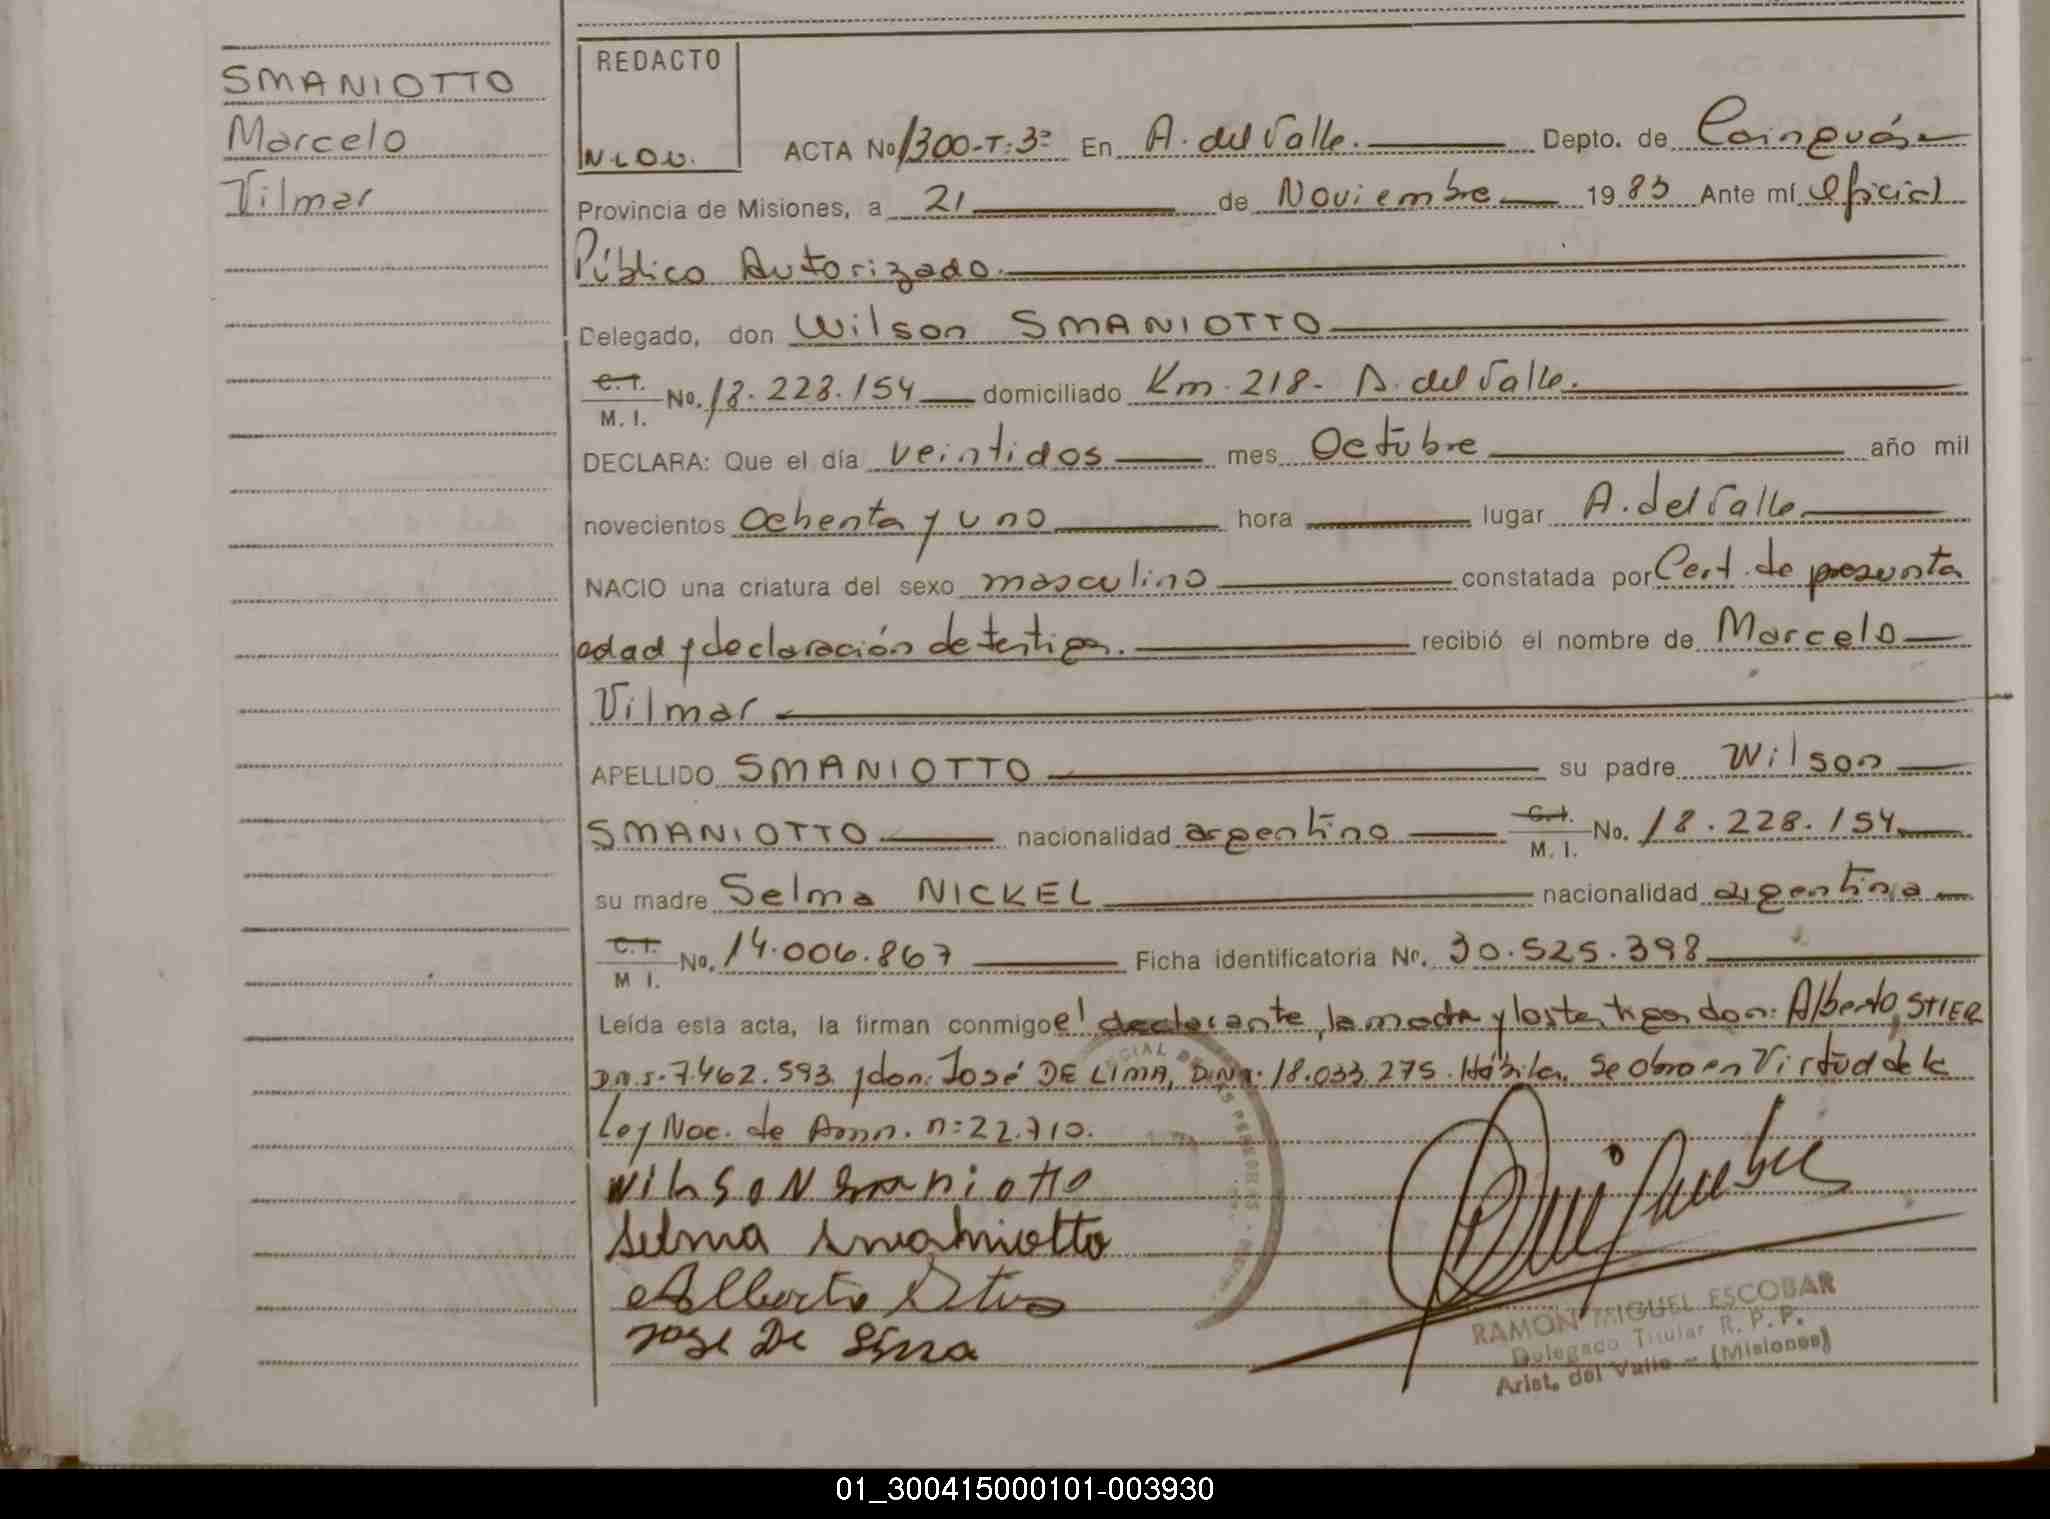 SMANIOTTO
Marcelo
Vilmar
REDACTO
ACTA No 1300-T:3º En A. del Valle. Depto. de Cainguás
Provincia de Misiones, a 21 de Noviembre 1983 Ante mí Oficial
Público Autorizado.
Delegado, don Wilson SMANIOTTO
C.I. M. I. No. 18.228.154 domiciliado Km. 218- A. del Valle.
DECLARA: Que el día veintidos mes Octubre año mil
novecientos Ochenta y uno hora lugar A. del Valle
NACIO una criatura del sexo masculino constatada por Cert. de presunta
edad y declaración de testigos. recibió el nombre de Marcelo
Vilmar
APELLIDO SMANIOTTO su padre Wilson
SMANIOTTO nacionalidad argentino C.I. M. I. No. 18.228.154
su madre Selma NICKEL nacionalidad argentina
C.I. M I. No. 14.006.867 Ficha identificatoria No. 30.525.398
Leída esta acta, la firman conmigo el declarante, la madre y los testigos don: Alberto STIER
7.462.593 y don: José DE LIMA, D.N.I. 18.033.275. Hábiles. Se obro en Virtud de la
Ley Nac. de Amn. n: 22.710.
Wilson Smaniotto
Selma Smaniotto
Alberto Stier
Jose De Lima
RAMON MIGUEL ESCOBAR
Delegado Titular R. P. P.
Arist. del Valle - (Misiones)
01_300415000101-003930